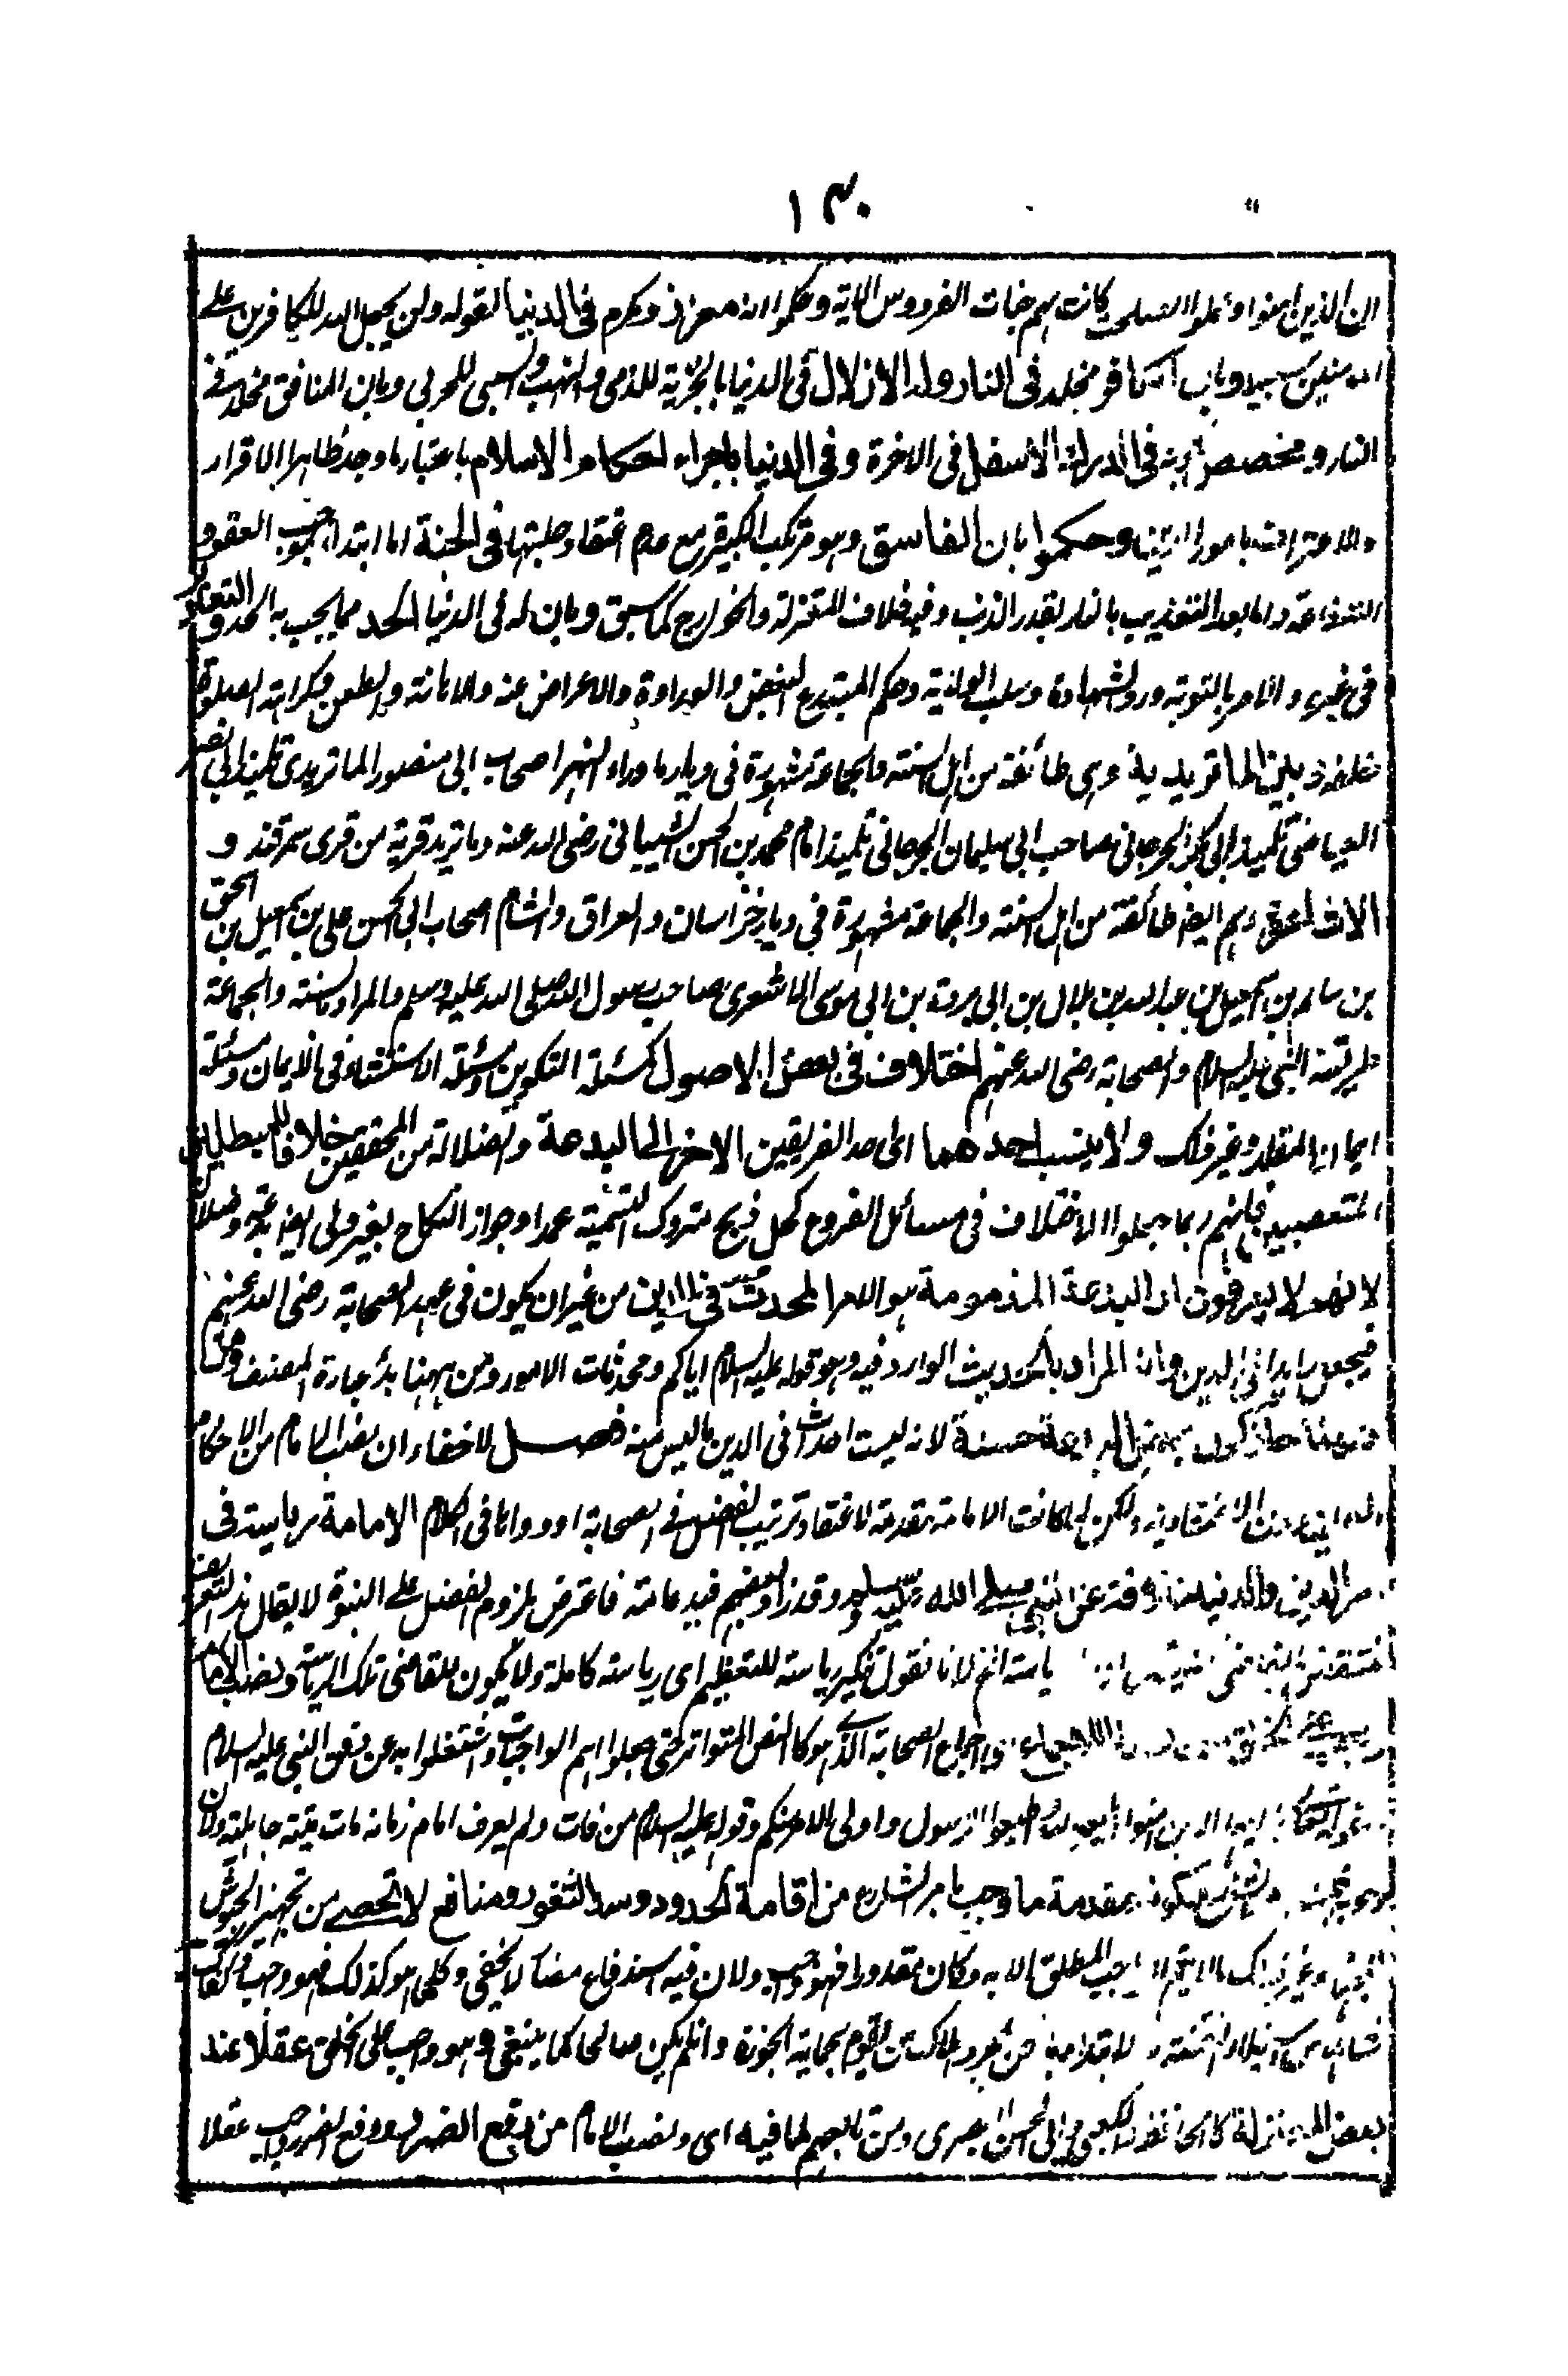 ١٣٠
ان الذين امنوا وعملوا الصلحت كانت لهم جنات الفردوس الاية وحكموا انه معزز ومكرم فى الدنيا لقوله ولن يجعل الله للكافرين على
المؤمنين سبيلا وبان الكافر مخلد فى النار وله الاذلال فى الدنيا بالجزية للذمى والنهب والسبى للحربى وبان المنافق مخلد فى
النار ومخصص بانه فى الدرك الاسفل فى الاخرة وفى الدنيا باجراء احكام الاسلام باعتبار ما وجد ظاهرا الاقرار
والاعتراف بامور الدين وحكموا بان الفاسق وهو مرتكب الكبيرة مع عدم اعتقاد حليتها فى الجنة اما ابتداء بموجب العفو و
الشفاعة واما بعد التعذيب بالنار بقدر الذنب وفيه خلاف المعتزلة والخوارج كما سبق وبان له فى الدنيا الحد مما يجب به الحد والتعزير
فى غيره والامر بالتوبة ورد الشهادة وسلب الولاية وحكم المبتدع البغض والعداوة والاعراض عنه والاهانة والطعن وكراهة الصلوة
خلفه وبين الماتريدية وهى طائفة من اهل السنة والجماعة مشهورة فى ديار ما وراء النهر اصحاب ابى منصور الماتريدى تلميذ ابى نصر
العياضى تلميذ ابى بكر الجرجانى صاحب ابى سليمان الجرجانى تلميذ امام محمد بن الحسن الشيبانى رضى الله عنه وماتريد قرية من قرى سمرقند و
الاشاعرة وهم ايضا طائفة من اهل السنة والجماعة مشهورة فى ديار خراسان والعراق والشام اصحاب ابى الحسن على بن اسمعيل بن اسحق
بن سالم بن اسمعيل بن عبد الله بن بلال بن ابى بردة بن ابى موسى الاشعرى صاحب رسول الله صلى الله عليه وسلم والمراد بالسنة والجماعة
طريقة النبى عليه السلام والصحابة رضى الله عنهم اختلاف فى بعض الاصول كمسئلة التكوين ومسئلة الاستثناء فى الايمان ومسئلة
ايمان المقلد وغير ذلك ولا ينسب احدهما اى احد الفريقين الاخر الى البدعة والضلالة من المحققين خلافا للمبطلين
المتعصبين فانهم ربما جعلوا الاختلاف فى مسائل الفروع كحل ذبح متروك التسمية عمدا وجواز النكاح بغير ولى ايضا بدعة وضلالة
لانهم لا يعرفون ان البدعة المذمومة هو الامر المحدث فى الدين من غير ان يكون فى عهد الصحابة رضى الله عنهم
فيجعل زايدا فى الدين وان المراد بالحديث الوارد فيه وهو قوله عليه السلام اياكم ومحدثات الامور ومن ههنا بدأ عبارة المصنف
بدعة حسنة لانه ليست احداث فى الدين ما ليس منه فصل لا خفاء ان نصب الامام من الاحكام
ولكن لما كانت الامامة مقدمة لاعتقاد ترتيب الفضل فى الصحابة اوردناها فى الكلام الامامة رياسة فى
امر الدين والدنيا خلافة عن النبى صلى الله عليه وسلم وقد زاد بعضهم قيد عامة فاعترض بلزوم الفضل على النبوة لا يقال هذا التعريف
رياسة الخ لانا نقول تنكير رياسة للتعظيم اى رياسة كاملة ولا يكون للقاضى تلك الرياسة ونصب الامام
اجماع الصحابة الذى هو كالنص المتواتر حتى جعلوا اهم الواجبات واشتغلوا به عن دفن النبى عليه السلام
اطيعوا الله واطيعوا الرسول واولى الامر منكم وقوله عليه السلام من مات ولم يعرف امام زمانه مات ميتة جاهلية ولان
بمقدمة ما وجب بامر الشارع من اقامة الحدود وسد الثغور ومنافع لا تحصى من تجهيز الجيوش
الواجب المطلق الا به وكان مقدورا فهو واجب ولان فيه استدفاع مضار لا يخفى وكل ما هو كذلك فهو واجب
يقوم بحماية الحوزة وان لم يكن صالحا كما ينبغى وهو واجب على الخلق عقلا عند
بعض المعتزلة كالجاحظ والكعبى وابى الحسين البصرى ومن تابعهم لما فيه اى ونصب الامام من دفع الضرر ودفع الضرر واجب عقلا